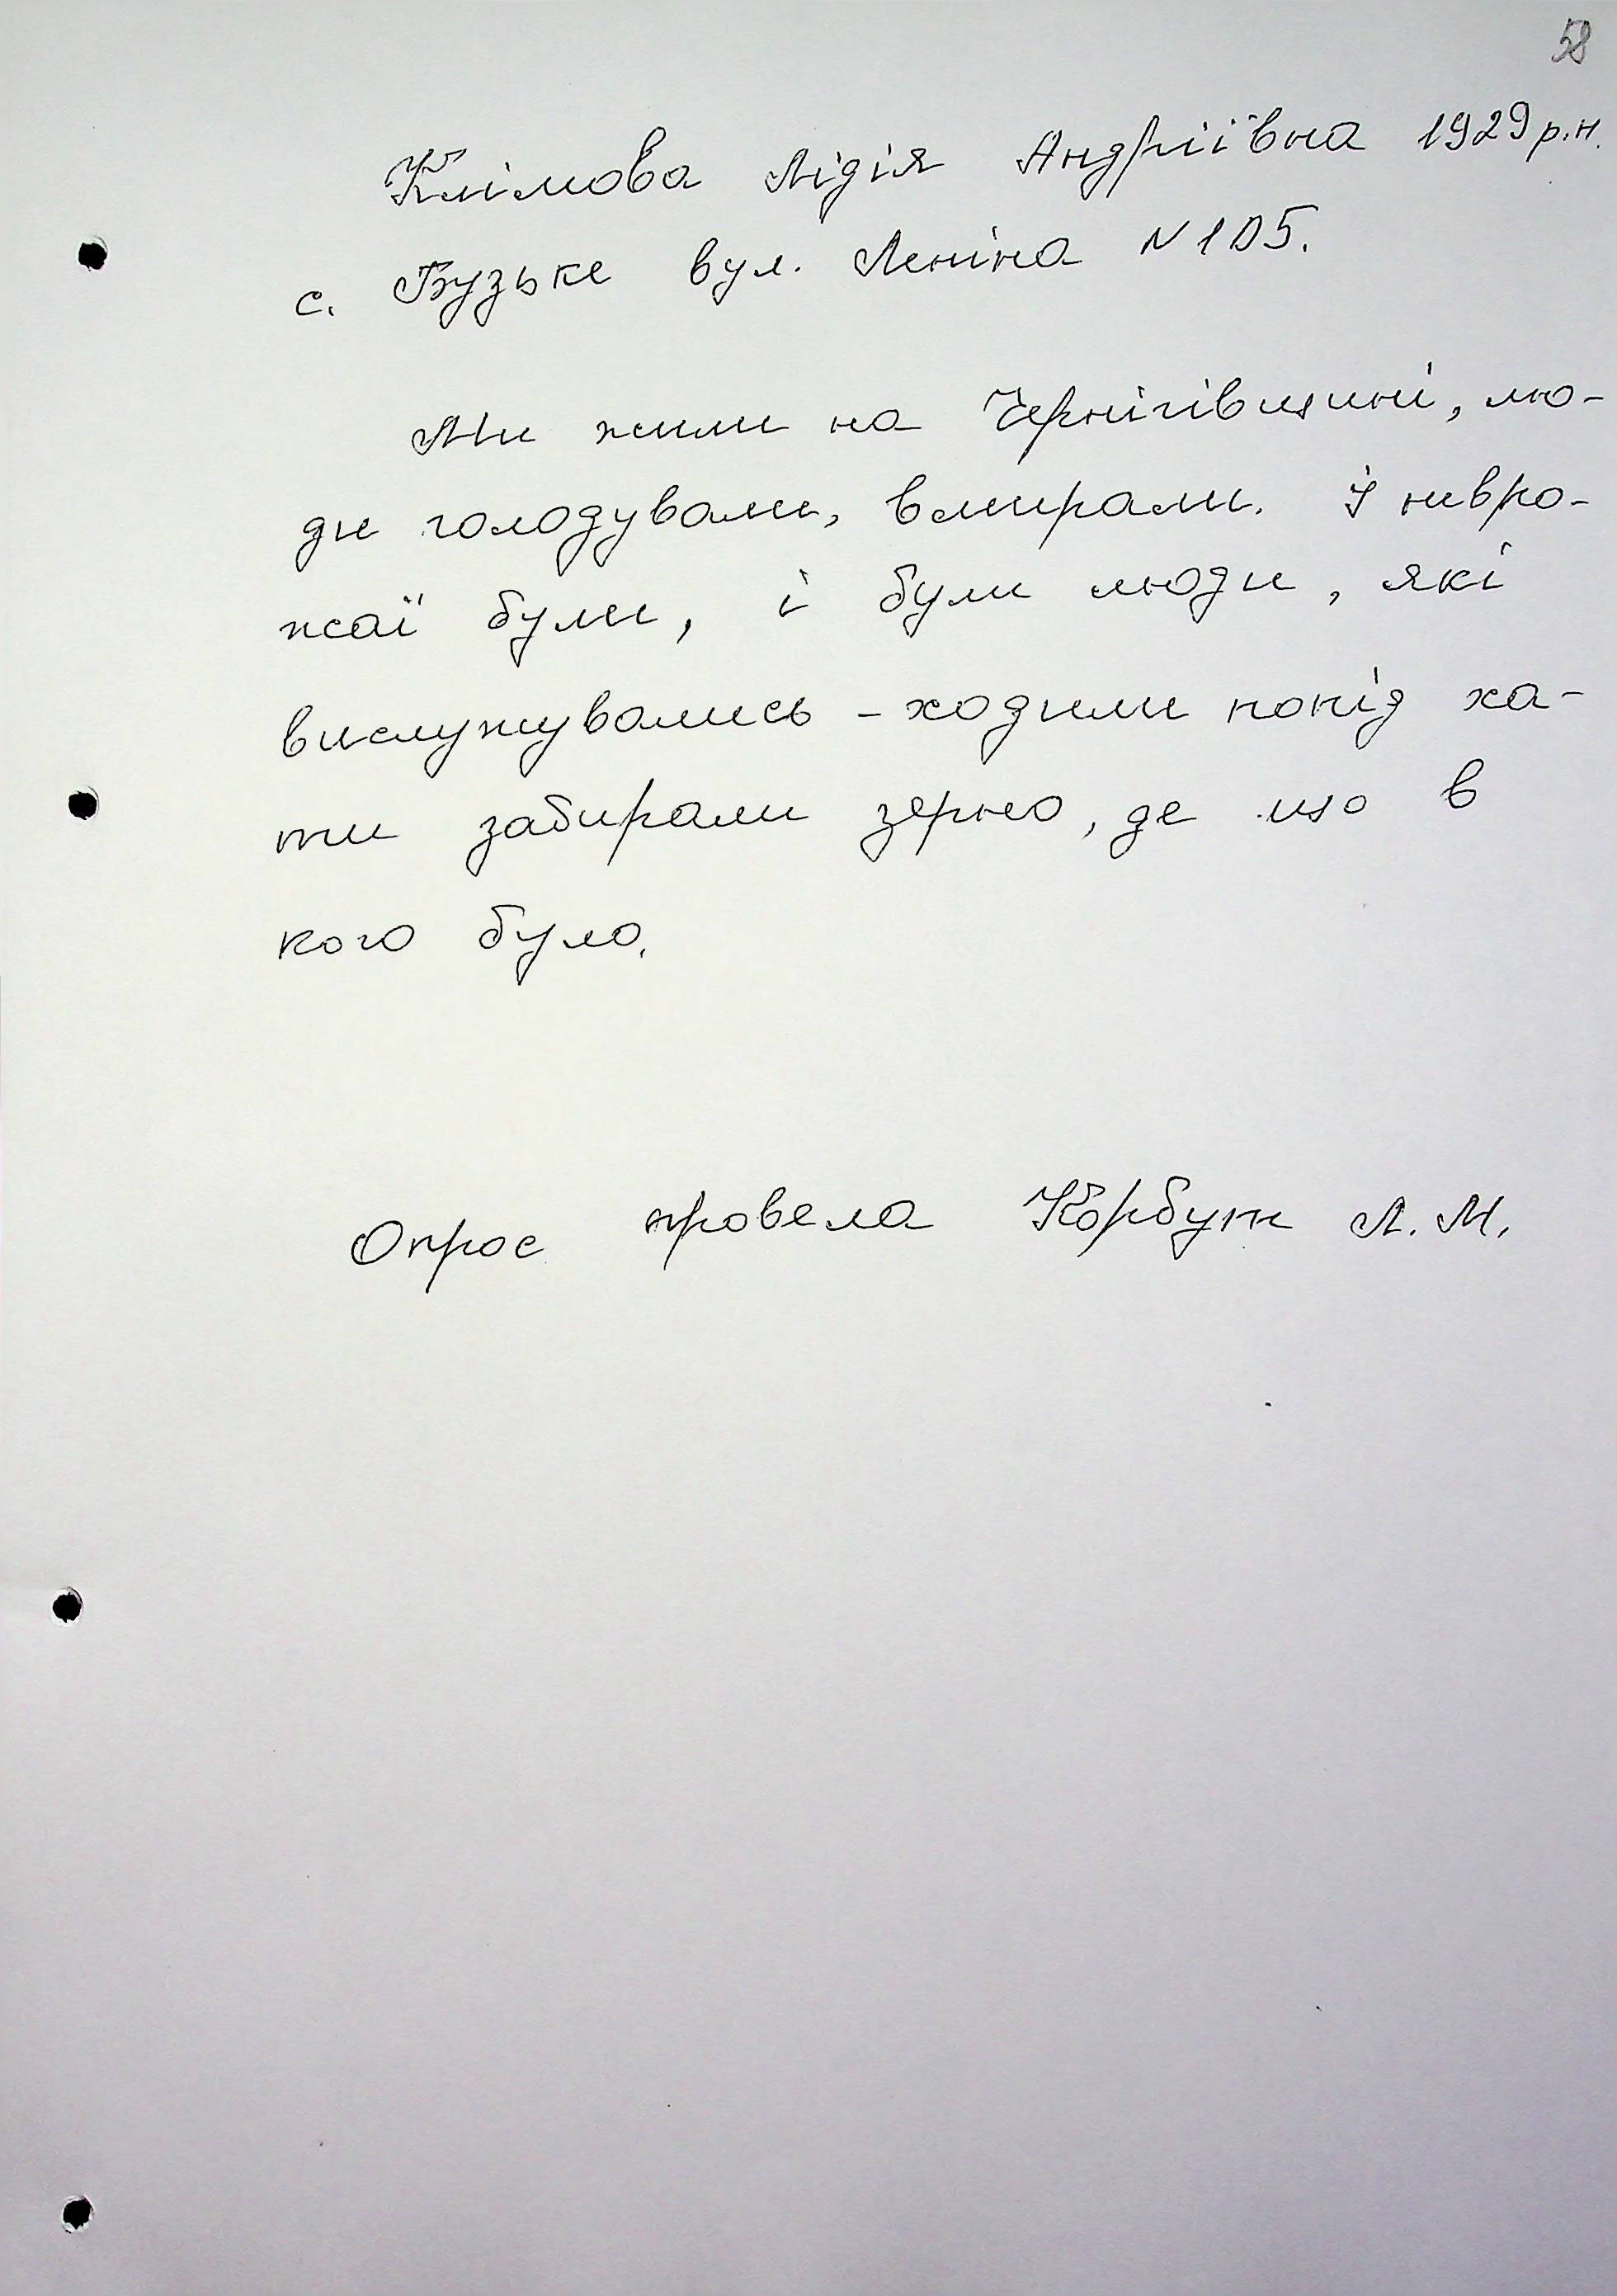 58
Клімова Лідія Андріївна 1929 р.н.
с. Бузьке вул. Леніна N 105.
Ми жили на Чернігівщині, лю-
ди голодували, вмирали. І невро-
жаї були, і були люди, які
вислужувались - ходили попід ха-
ти забирали зерно, де що в
кого було.
Опрос провела Корбут Л. М.